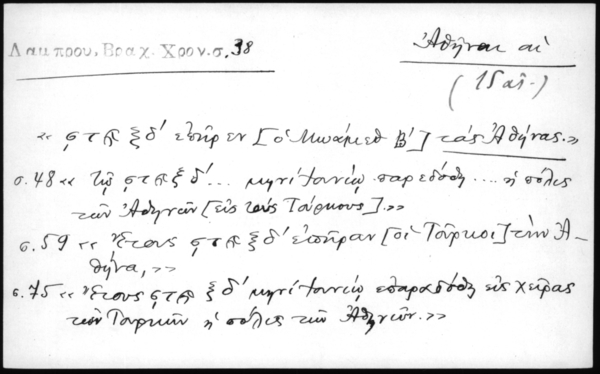 Λαμπρου, Βραχ. Χρον. σ. 38
Ἀθῆναι αἱ
(15 αἰ.)
« ϛϡξδ´ ἐπῆρεν [ὁ Μωάμεθ Β´] τὰς Ἀθήνας.»
σ. 48 « Τῷ ϛϡξδ´... μηνὶ Ἰουνίῳ παρεδόθη .... ἡ πόλις
τῶν Ἀθηνῶν [εἰς τοὺς Τούρκους].»
σ. 59 « Ἔτους ϛϡξδ´ ἐπῆραν [οἱ Τοῦρκοι] τὴν Ἀ-
θήνα,»
σ. 75 « Ἔτους ϛϡξδ´ μηνὶ Ἰουνίῳ ἐπαραδόθη εἰς χεῖρας
τῶν Τουρκῶν ἡ πόλις τῶν Ἀθηνῶν.»